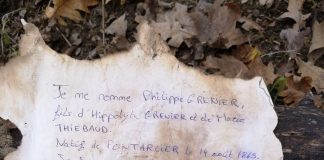 Je me nomme Philippe GRENIER,
fils d'Hippolyte GRENIER et de Marie
THIEBAUD.
Natif de PONTARLIER le 14 août 1865.